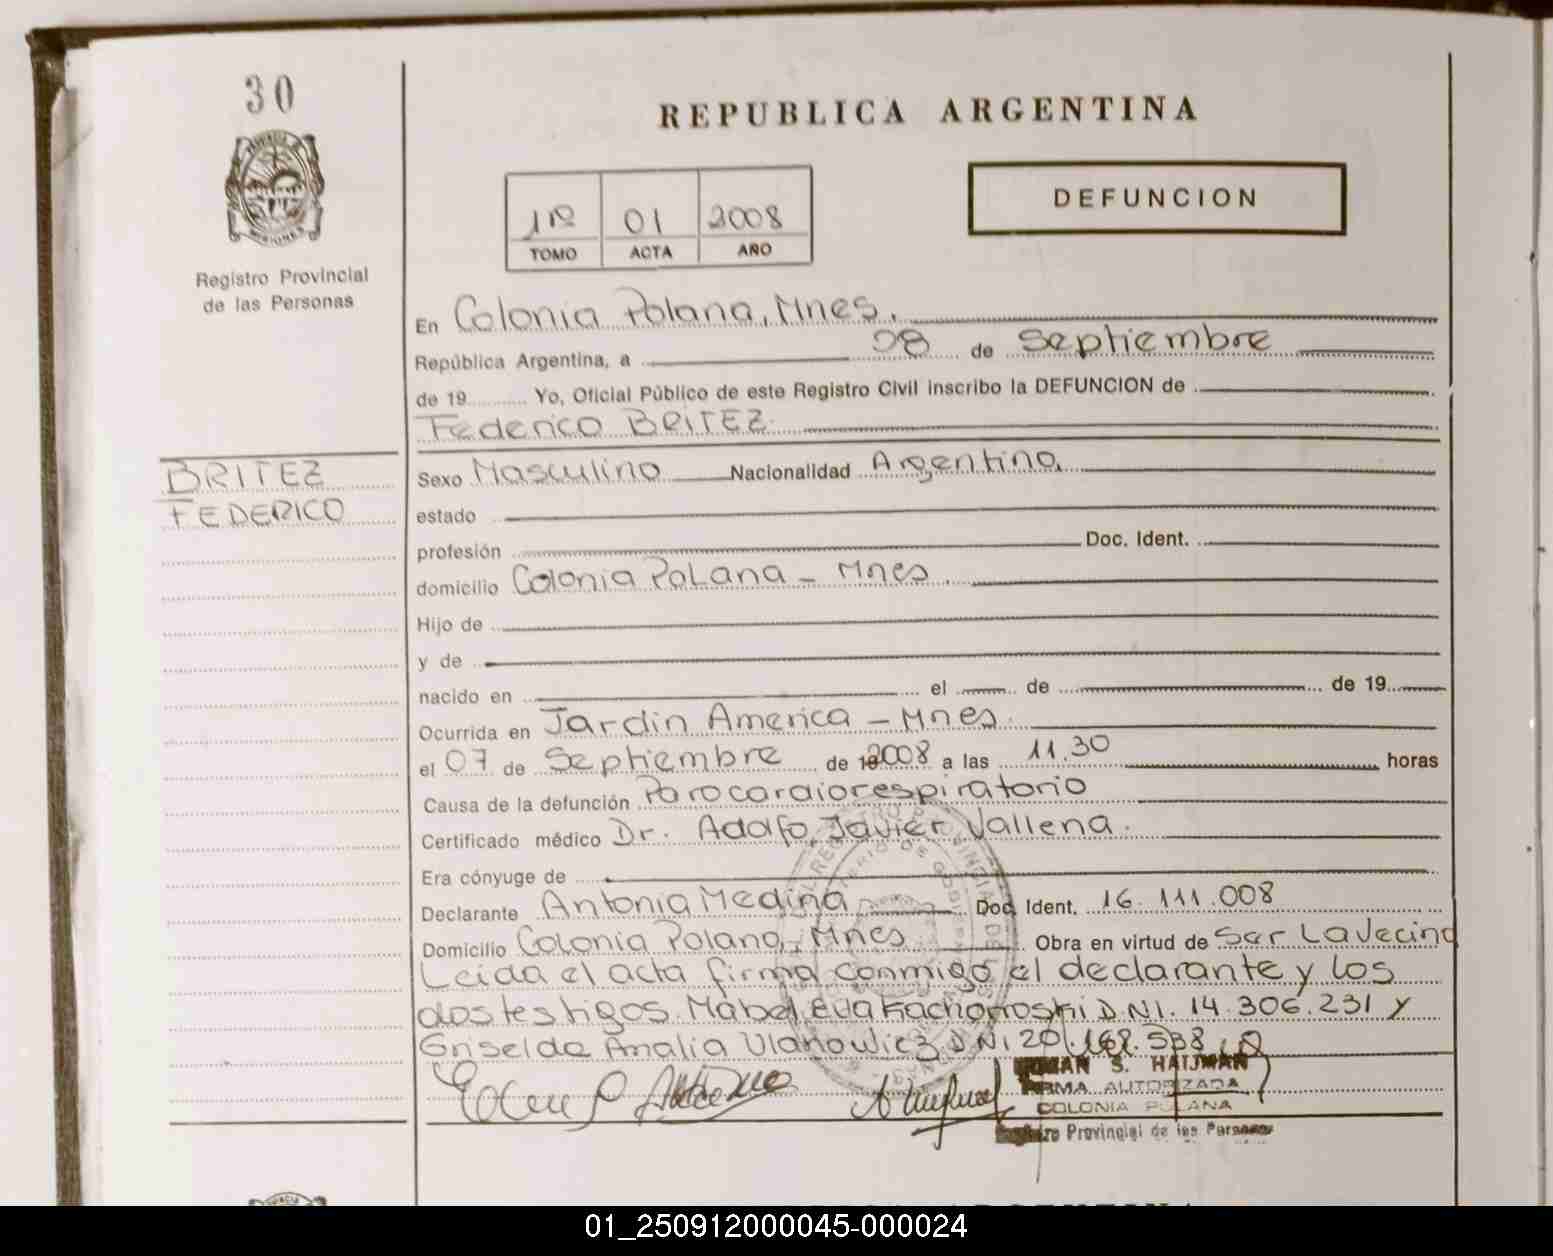 30
REPUBLICA ARGENTINA
DEFUNCION
1º 01 2008
TOMO ACTA AÑO
Registro Provincial
de las Personas
En Colonia Polana, Mnes.
República Argentina, a 08 de Septiembre
de 19 Yo, Oficial Público de este Registro Civil inscribo la DEFUNCION de
Federico BRITEZ
BRITEZ
FEDERICO
Sexo Masculino Nacionalidad Argentino
estado
profesión Doc. Ident.
domicilio Colonia Polana - Mnes.
Hijo de
y de
nacido en el de de 19
Ocurrida en Jardin America - Mnes.
el 07 de Septiembre de 2008 a las 11.30 horas
Causa de la defunción Parocardiorespiratorio
Certificado médico Dr. Adolfo Javier Vallena.
Era cónyuge de
Declarante Antonia Medina Doc. Ident. 16.111.008
Domicilio Colonia Polana, Mnes Obra en virtud de Ser La Vecina
Leida el acta firma conmigo el declarante y los
dos testigos Mabel Eva DNI. 14.306.231 y
Griselda Amalia Ulanowicz DNI 20.
S. HAIJMAN
FIRMA AUTORIZADA
COLONIA POLANA
Registro Provincial de las Personas
01_250912000045-000024